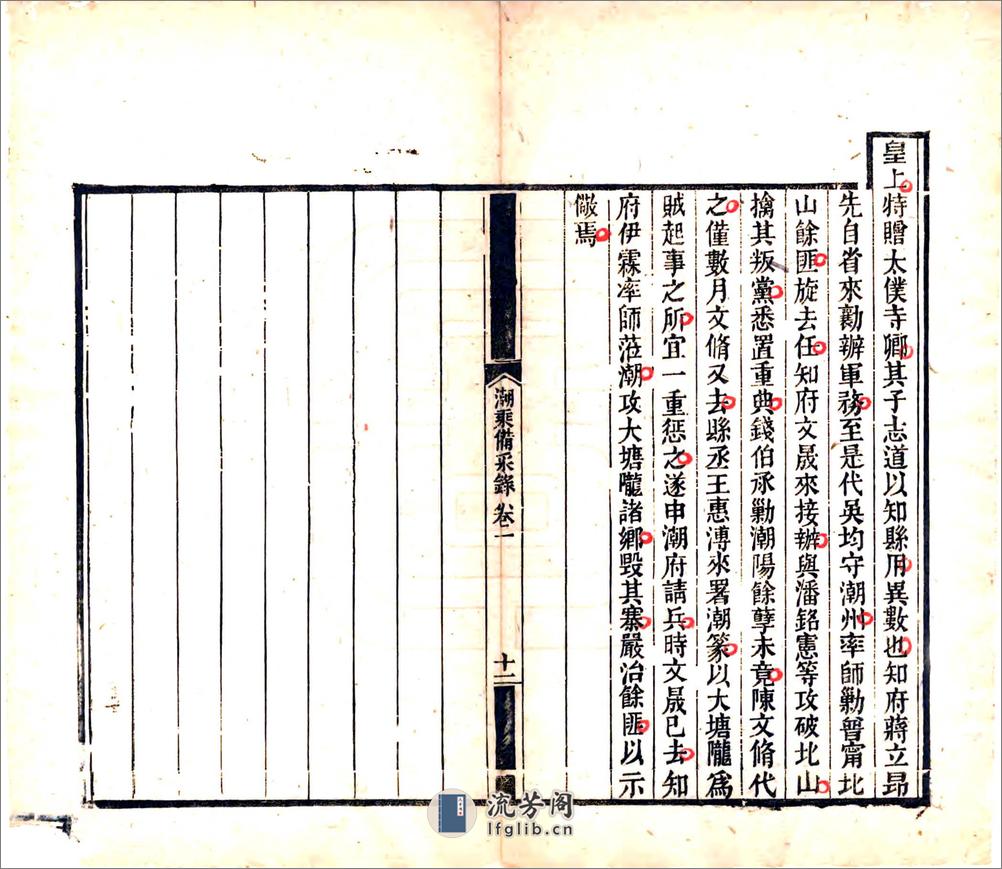 皇上特贈太僕寺卿其子志道以知縣用異數也知府蔣立昂
先自省來勷辦軍務至是代吳均守潮州率師勦普甯北
山餘匪旋去任知府文晟來接辦與潘銘憲等攻破北山
擒其叛黨悉置重典錢伯承勦潮陽餘孽未竟陳文脩代
之僅數月文脩又去縣丞王惠溥來署潮篆以大塘隴爲
賊起事之所宜一重懲之遂申潮府請兵時文晟已去知
府伊霖率師蒞潮攻大塘隴諸鄉毀其寨嚴治餘匪以示
儆焉
潮乘備采錄 卷一
十一
流芳阁
lfglib.cn